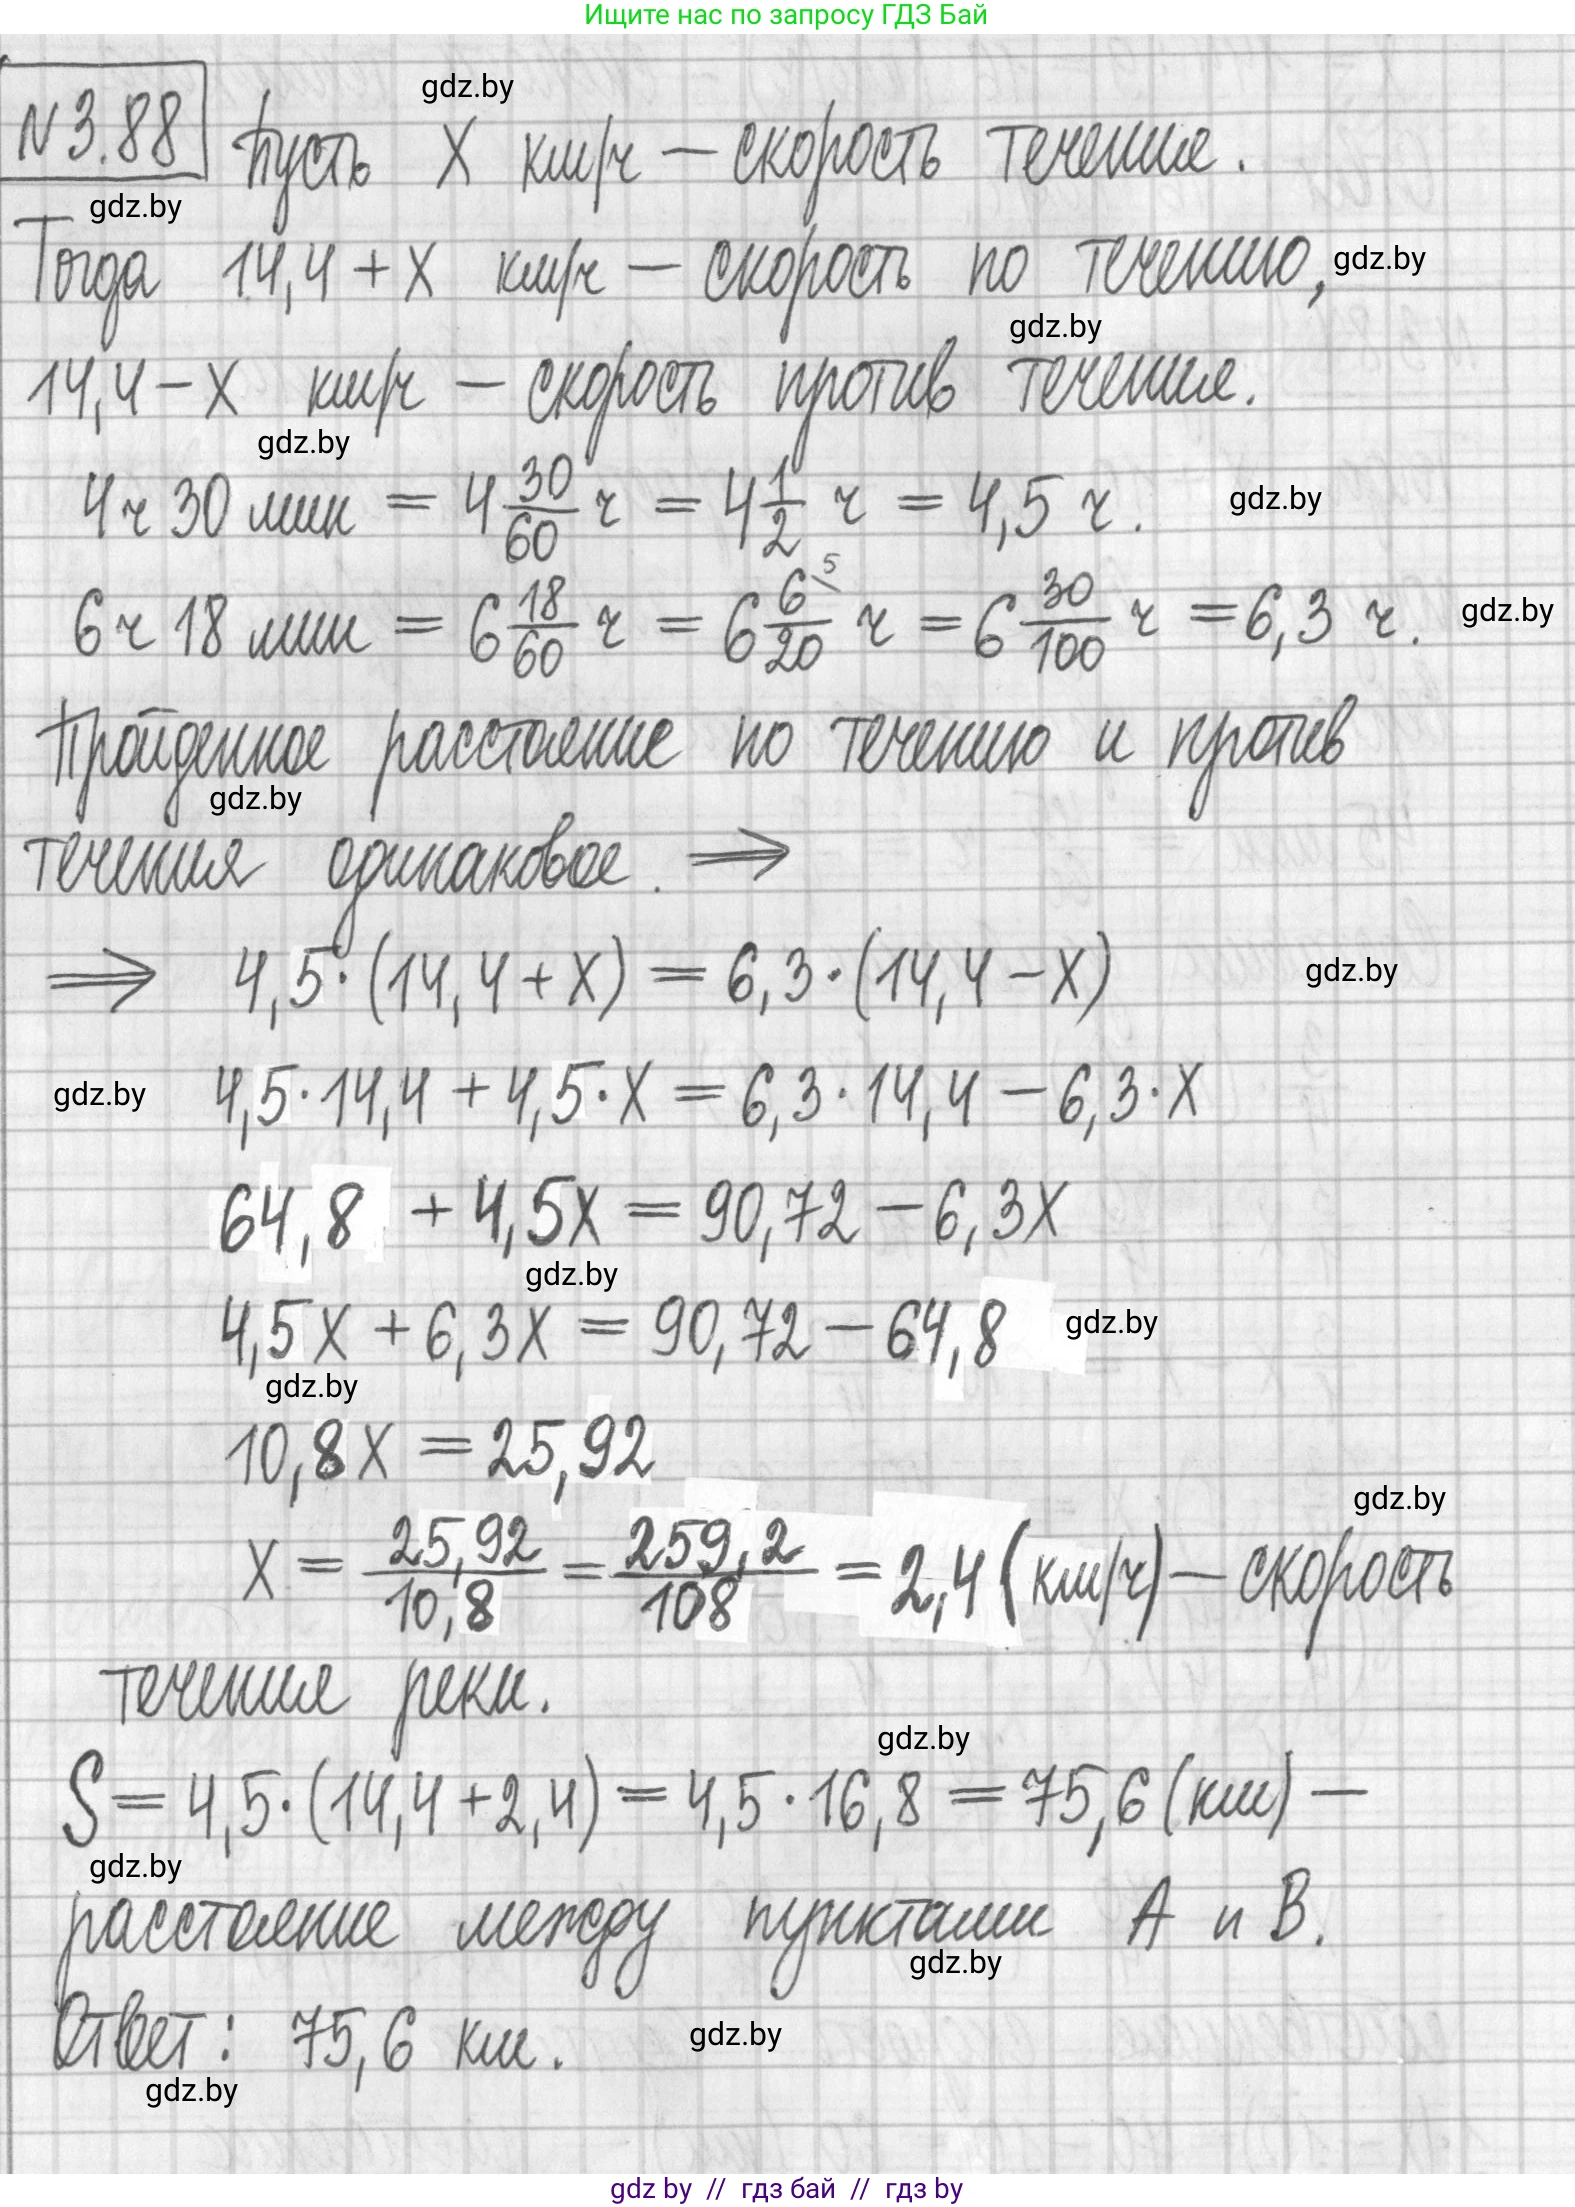 Ищите нас по запросу ГДЗ Бай
gdz.by
N 3.88 Пусть x км/ч — скорость течения.
gdz.by
Тогда 14,4 + x км/ч — скорость по течению, gdz.by
gdz.by
14,4 − x км/ч — скорость против течения.
gdz.by
4 ч 30 мин = 4 30/60 ч = 4 1/2 ч = 4,5 ч. gdz.by
6 ч 18 мин = 6 18/60 ч = 6 6/20 ⁵ ч = 6 30/100 ч = 6,3 ч. gdz.by
Пройденное расстояние по течению и против
gdz.by
течения одинаковое. ⇒
⇒ 4,5·(14,4 + x) = 6,3·(14,4 − x) gdz.by
gdz.by 4,5·14,4 + 4,5·x = 6,3·14,4 − 6,3·x
64,8 + 4,5x = 90,72 − 6,3x
gdz.by
4,5x + 6,3x = 90,72 − 64,8 gdz.by
gdz.by
10,8x = 25,92
gdz.by
x = 25,92/10,8 = 259,2/108 = 2,4 (км/ч) — скорость
течения реки.
gdz.by
S = 4,5·(14,4 + 2,4) = 4,5·16,8 = 75,6 (км) —
gdz.by
расстояние между пунктами A и B.
gdz.by
Ответ: 75,6 км. gdz.by
gdz.by
gdz by // гдз бай // гдз by